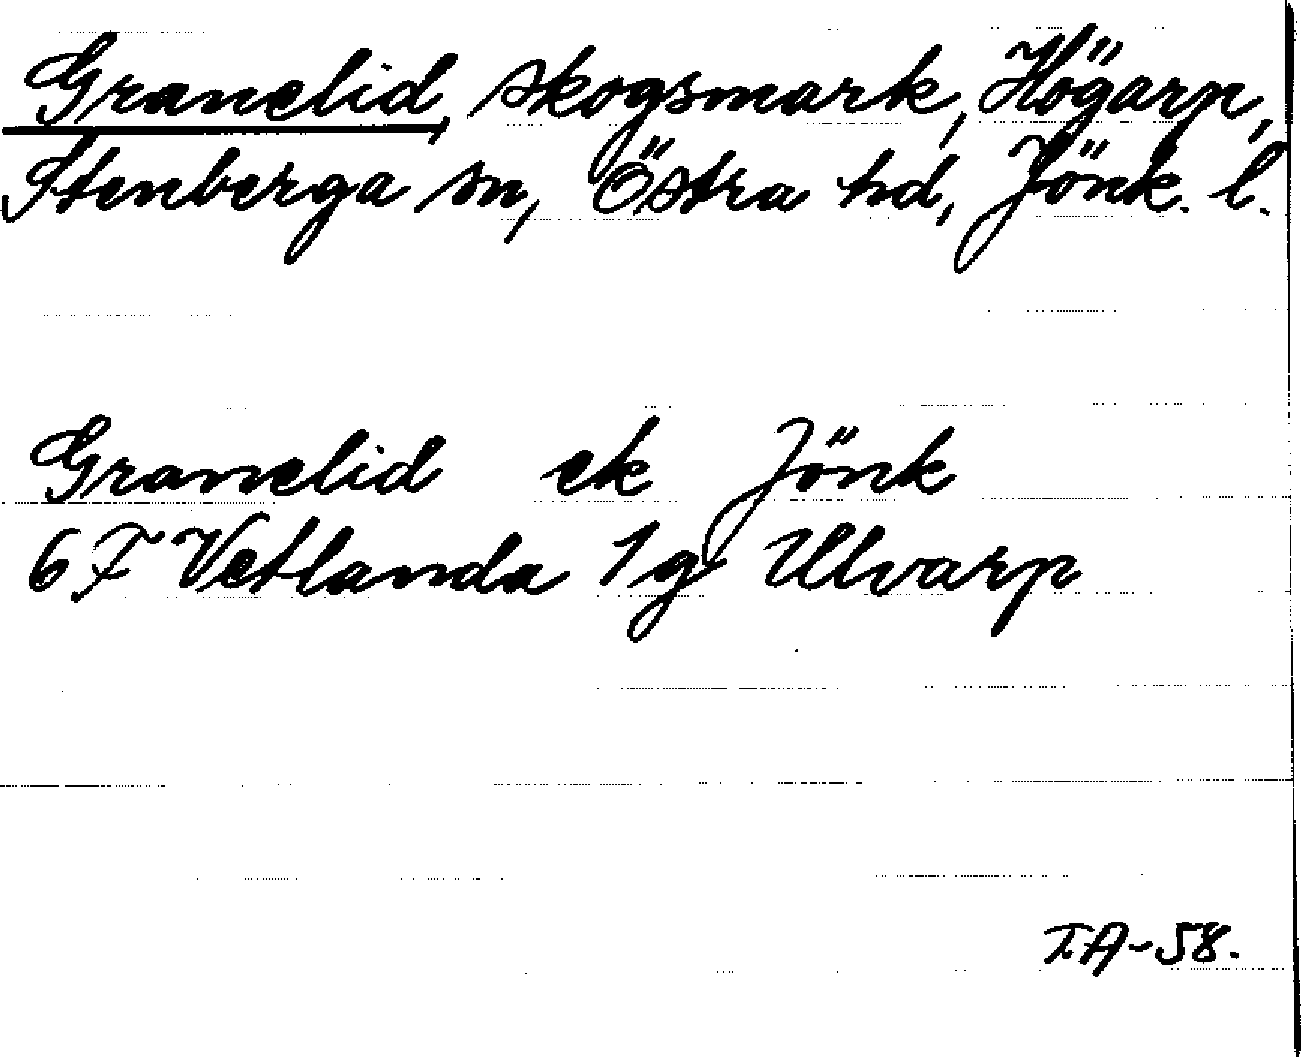 Granelid, skogsmark, Högarp,
Stenberga sn, Östra hd, Jönk. l.
Granelid ek Jönk
6F Vetlanda 1g Ulvarp
IA-58.